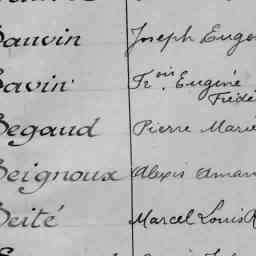 Sauvin Joseph Eugè
Savin Fr.ois Eugène
Frédé
Segaud Pierre Marie
Seignoux Alexis Aman
Seité Marcel Louis R